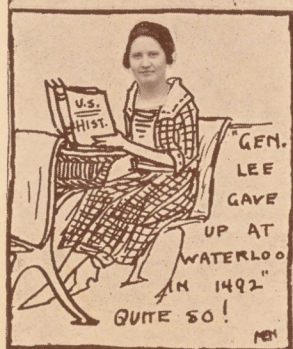 U.S.
HIST.
"GEN.
LEE
GAVE
UP AT
WATERLOO
IN 1492"
QUITE SO!